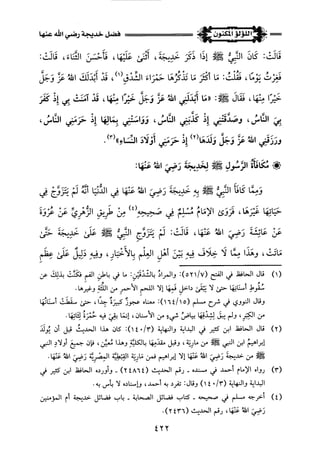 اللؤلؤ المكنون
فضل خديجة رضي الله عنها
قالت: كان النبي ﷺ إذا ذكر خديجة، أثنى عليها، فأحسن الثناء، قالت:
فغرت يوما، فقلت: ما أكثر ما تذكرها حمراء الشدق(١)، قد أبدلك الله عز وجل
خيرا منها، فقال ﷺ: «ما أبدلني الله عز وجل خيرا منها، قد آمنت بي إذ كفر
بي الناس، وصدقتني إذ كذبني الناس، وواستني بمالها إذ حرمني الناس،
ورزقني الله عز وجل ولدها(٢) إذ حرمني أولاد النساء»(٣).
مكافأة الرسول ﷺ لخديجة رضي الله عنها:
ومما كافأ النبي ﷺ به خديجة رضي الله عنها في الدنيا أنه لم يتزوج في
حياتها غيرها، فروى الإمام مسلم في صحيحه(٤) من طريق الزهري عن عروة
عن عائشة رضي الله عنها، قالت: لم يتزوج النبي ﷺ على خديجة حتى
ماتت، وهذا مما لا خلاف فيه بين أهل العلم بالأخبار، وفيه دليل على عظم
(١) قال الحافظ في الفتح (٥٢١/٧): والمراد بالشدقين: ما في باطن الفم فكنت بذلك عن
سقوط أسنانها حتى لا يبقى داخل فمها إلا اللحم الأحمر من اللثة وغيرها.
وقال النووي في شرح مسلم (١٦٤/١٥): معناه عجوز كبيرة جدا، حتى سقطت أسنانها
من الكبر، ولم يبق لشدقها بياض شيء من الأسنان، إنما بقي فيه حمرة لثاتها.
(٢) قال الحافظ ابن كثير في البداية والنهاية (١٤٠/٣): كان هذا الحديث قبل أن يولد
إبراهيم ابن النبي ﷺ من مارية، وقبل مقدمها بالكلية وهذا متعين، فإن جميع أولاد النبي
ﷺ من خديجة رضي الله عنها إلا إبراهيم فمن مارية القبطية المصرية رضي الله عنها.
(٣) رواه الإمام أحمد في مسنده - رقم الحديث (٢٤٨٦٤) - وأورده الحافظ ابن كثير في
البداية والنهاية (١٤٠/٣) وقال: تفرد به أحمد، وإسناده لا بأس به.
(٤) أخرجه مسلم في صحيحه - كتاب فضائل الصحابة - باب فضائل خديجة أم المؤمنين
رضي الله عنها - رقم الحديث (٢٤٣٦).
٤٢٢